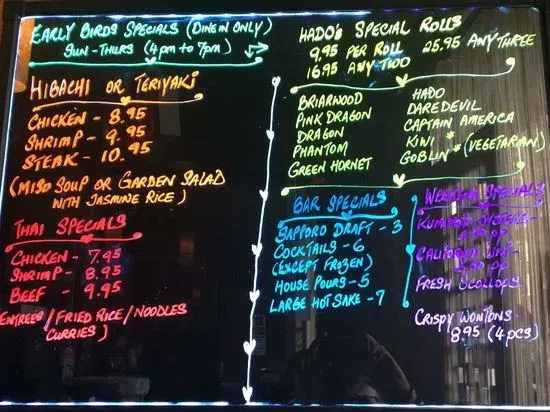 EARLY BIRDS SPECIALS (DINE IN ONLY)
SUN - THURS (4pm to 7pm)
HIBACHI OR TERIYAKI
CHICKEN - 8.95
SHRIMP - 9.95
STEAK - 10.95
(MISO SOUP OR GARDEN SALAD
WITH JASMINE RICE)
THAI SPECIALS
CHICKEN - 7.95
SHRIMP - 8.95
BEEF - 9.95
ENTREES/FRIED RICE/NOODLES
CURRIES)
HADO'S SPECIAL ROLLS
9.95 PER ROLL 25.95 ANY THREE
16.95 ANY TWO
BRIARWOOD
PINK DRAGON
DRAGON
PHANTOM
GREEN HORNET
HADO
DAREDEVIL
CAPTAIN AMERICA
KIWI *
GOBLIN * (VEGETARIAN)
BAR SPECIALS
SAPPORO DRAFT - 3
COCKTAILS - 6
(EXCEPT FROZEN)
HOUSE POURS - 5
LARGE HOT SAKE - 7
SPECIALS
KUMAMOTO OYSTERS -
CALIFORNIA UNI -
FRESH SCALLOPS
CRISPY WONTONS -
8.95 (4 pcs)